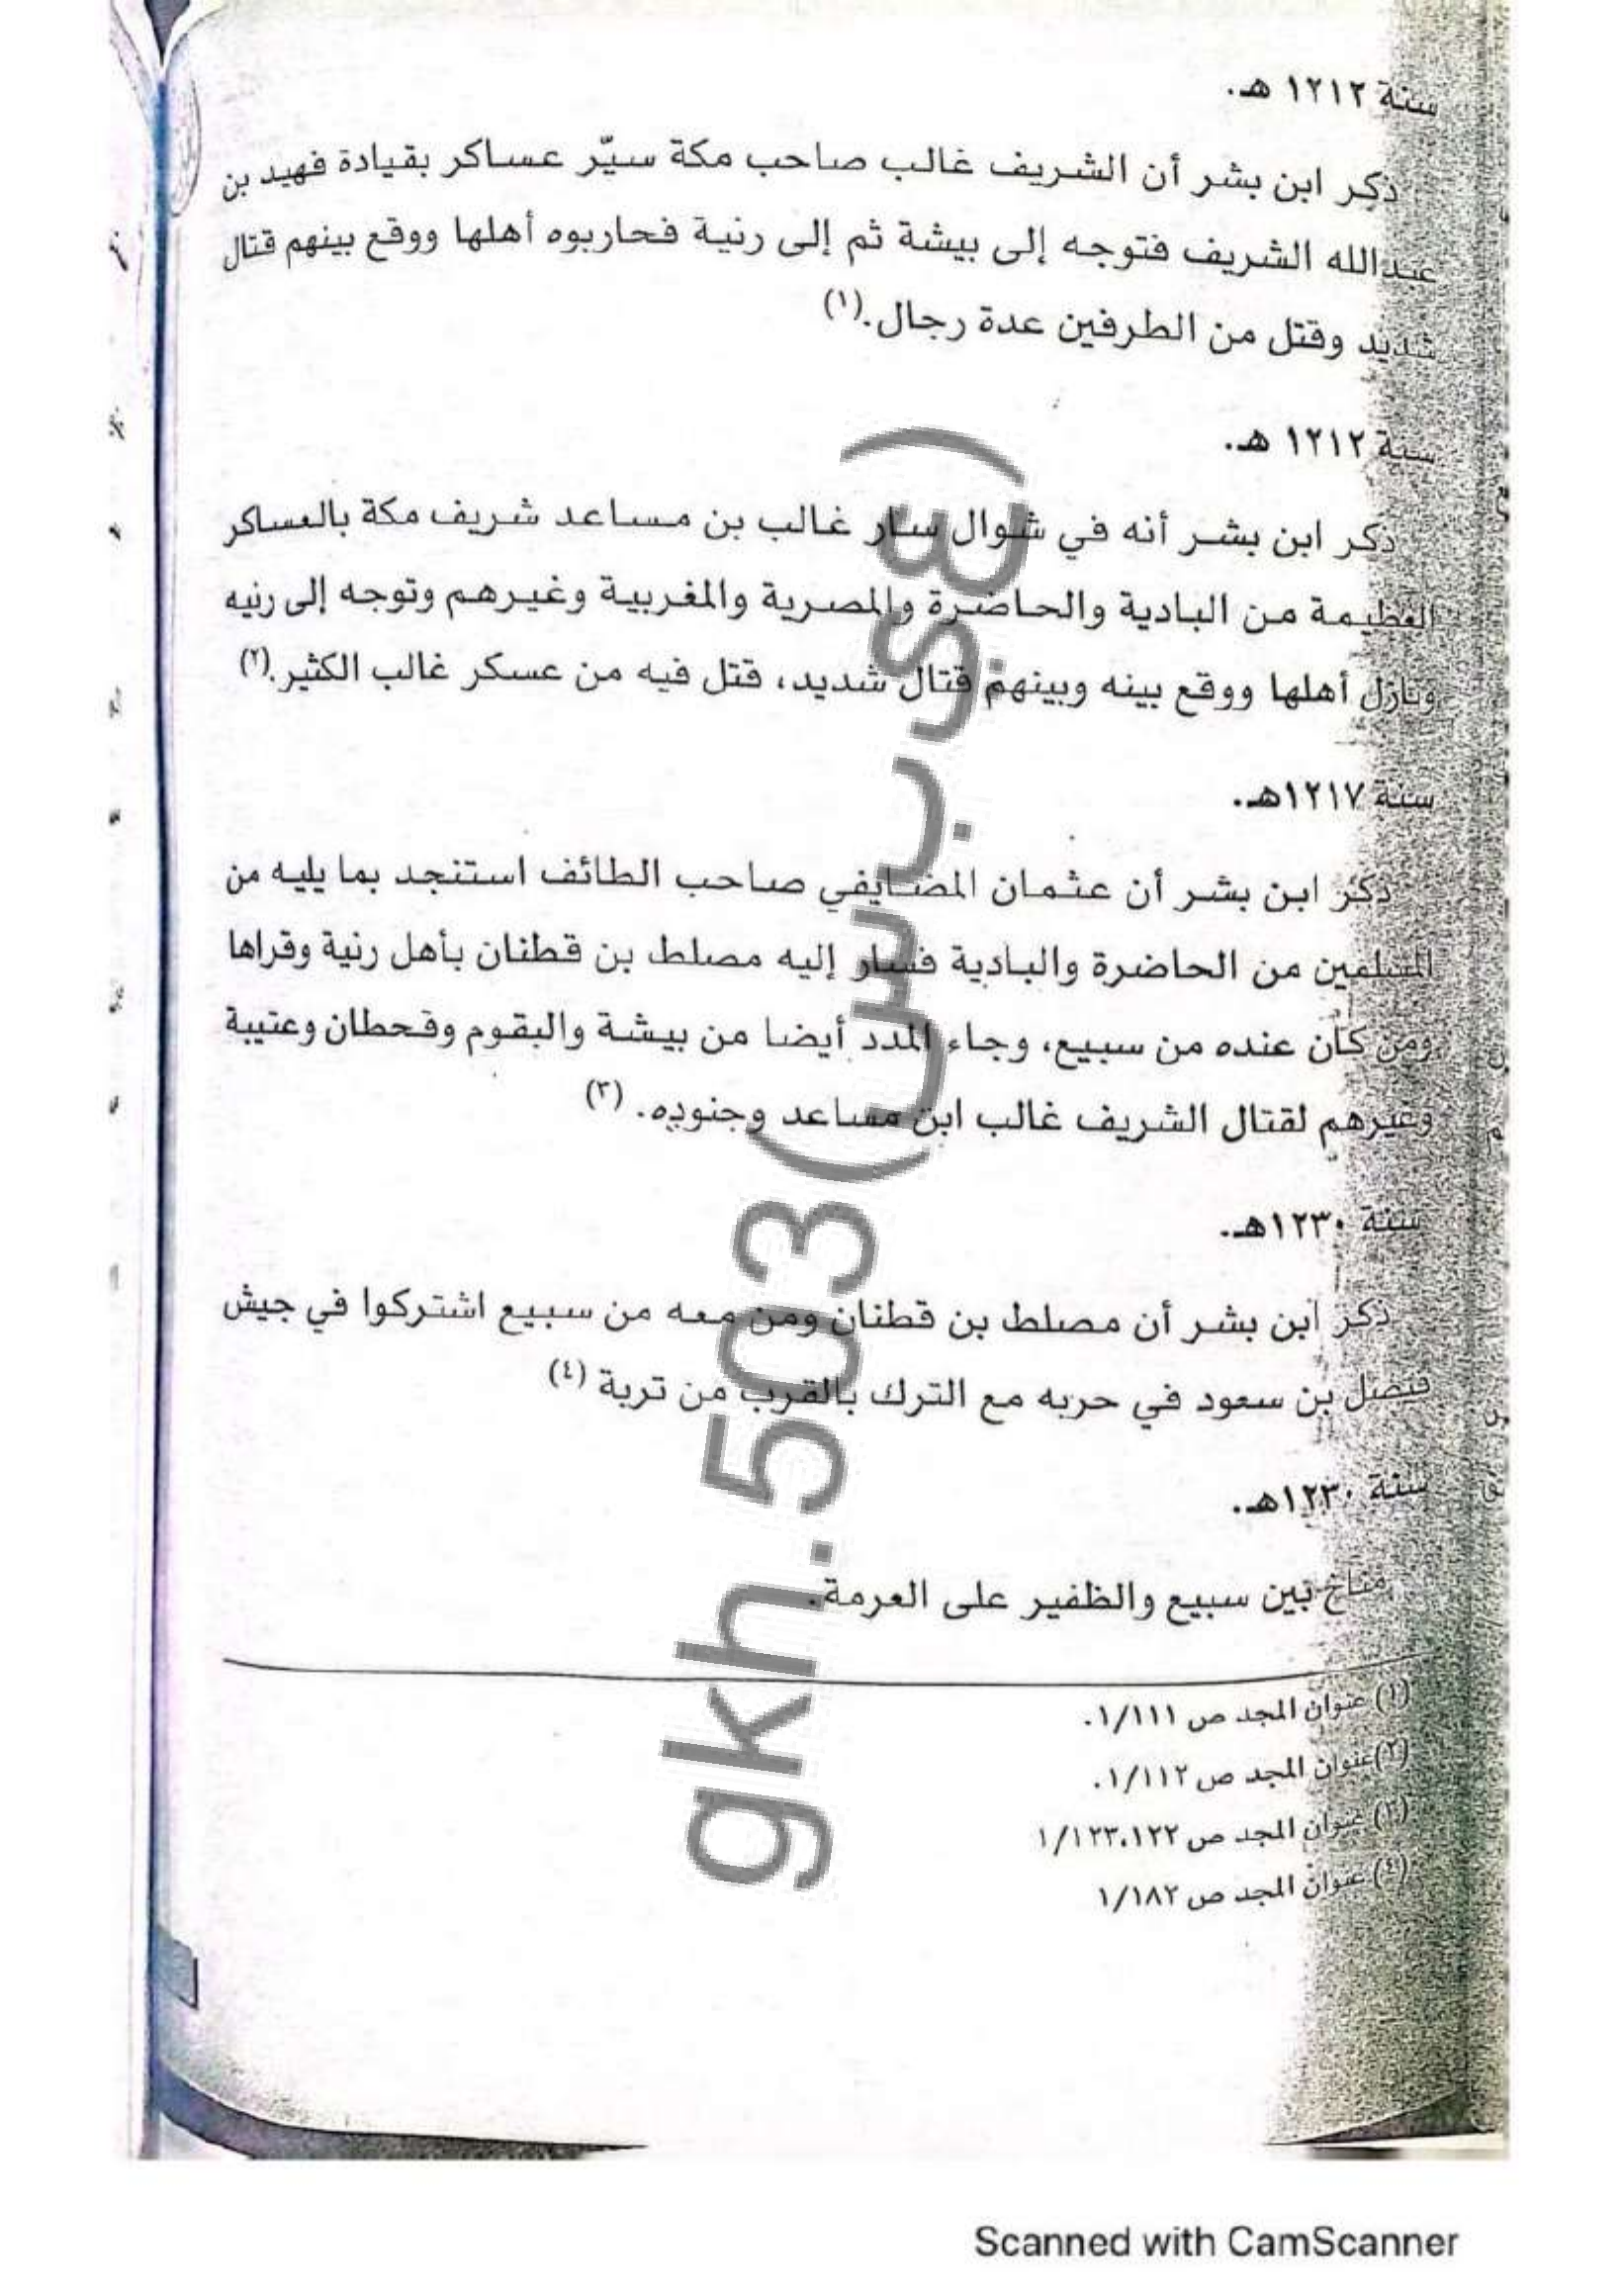 سنة ١٢١٢ هـ.
ذكر ابن بشر أن الشريف غالب صاحب مكة سيّر عساكر بقيادة فهيد بن
عبدالله الشريف فتوجه إلى بيشة ثم إلى رنية فحاربوه أهلها ووقع بينهم قتال
شديد وقتل من الطرفين عدة رجال.(١)
سنة ١٢١٢ هـ.
ذكر ابن بشر أنه في شوال سار غالب بن مساعد شريف مكة بالعساكر
العظيمة من البادية والحاضرة والمصرية والمغربية وغيرهم وتوجه إلى رنيه
ونازل أهلها ووقع بينه وبينهم قتال شديد، قتل فيه من عسكر غالب الكثير.(٢)
سنة ١٢١٧هـ.
ذكر ابن بشر أن عثمان المضايفي صاحب الطائف استنجد بما يليه من
المسلمين من الحاضرة والبادية فسار إليه مصلط بن قطنان بأهل رنية وقراها
ومن كان عنده من سبيع، وجاء المدد أيضا من بيشة والبقوم وقحطان وعتيبة
وغيرهم لقتال الشريف غالب ابن مساعد وجنوده. (٣)
سنة ١٢٣٠هـ.
ذكر ابن بشر أن مصلط بن قطنان ومن معه من سبيع اشتركوا في جيش
فيصل بن سعود في حربه مع الترك بالقرب من تربة (٤)
سنة ١٢٣٠هـ.
مناخ بين سبيع والظفير على العرمة.
(١) عنوان المجد ص ١/١١١.
(٢) عنوان المجد ص ١/١١٢.
(٣) عنوان المجد ص ١/١٢٣،١٢٢
(٤) عنوان المجد ص ١/١٨٢
gkh.503(
Scanned with CamScanner